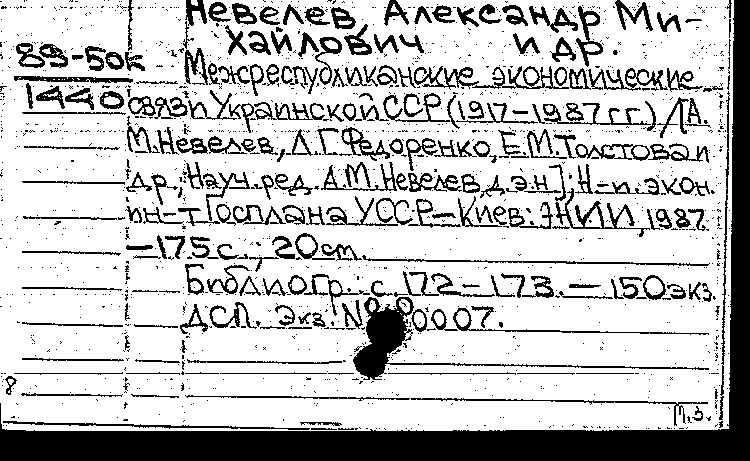 Невелев, Александр Ми-
хайлович и др.
89-50к
1440
Межреспубликанские экономические
связи Украинской ССР (1917-1987 гг.) / [А.
М. Невелев, Л. Г. Федоренко, Е. М. Толстова и
др.; Науч. ред. А. М. Невелев, д. э. н.]; Н.-и. экон.
ин-т Госплана УССР — Киев: ЭНИИ, 1987.
— 175 с.; 20 см.
Библиогр.: с. 172-173. — 150 экз.
ДСП. Экз. № 00007.
8